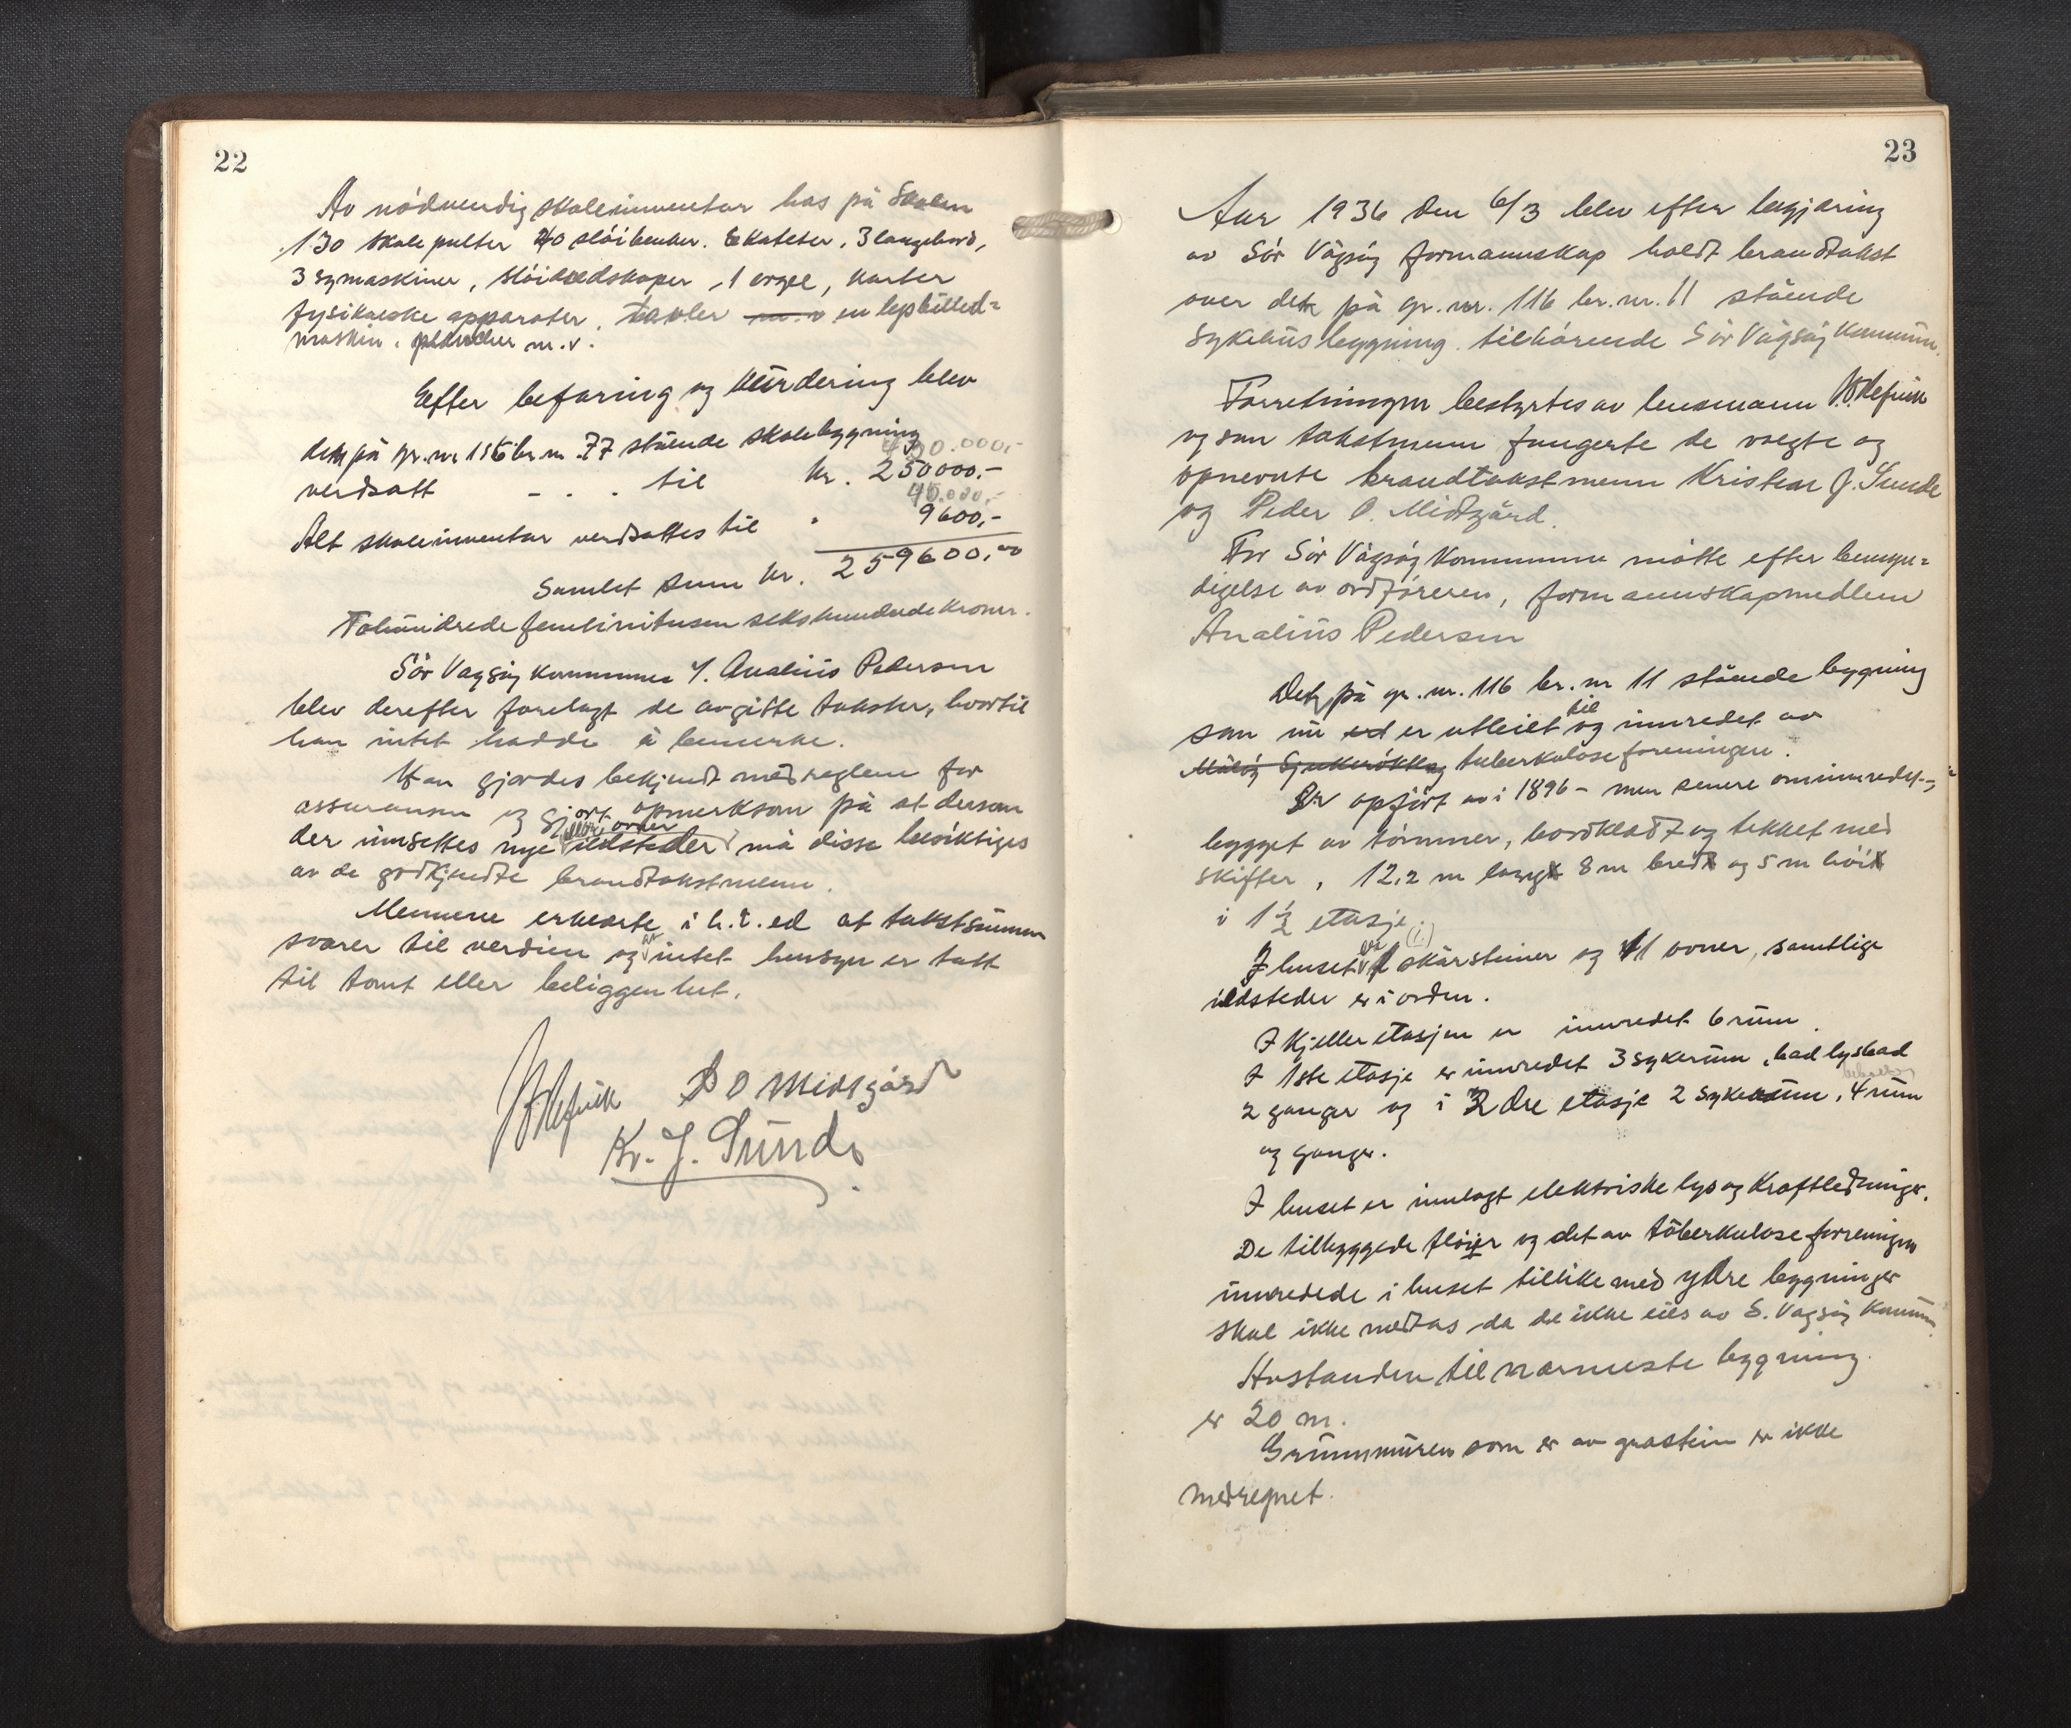 22
Av nödvendig skoleinventar has på Skolen
130 skole pulter 20 slöibenker. 6 kateter, 3 langebord,
3 symaskiner, slöiredskaper, 1 orgel, karter
fysikalske apparater, tavler m. v en lysbilled=
maskin, plancher m.v.
Efter befaring og vurdering blev
den på gr.nr 116 br.nr 77 stående skolebygning
430.000,-
verdsatt - . . til kr. 250000.-
45.000,-
Alt skoleinventar verdsattes til " 9600,-
Samlet sum kr. 259600,00
Tohundrede femtinitusen sekshundrede kroner.
Sör Vagsöy kommune v. Analius Pedersen
blev derefter forelagt de avgitte takster, hvortil
han intet hadde å bemerke.
Han gjordes bekjendt med reglene for
assuransen og gjort opmerksom på at dersom
eller ovner
der innsettes nye ildsteder må disse besiktiges
av de godkjendte brandtakstmenn.
Mennene erklærte i h. t. ed at takstsummen
at
svarer til verdien og intet hensyn er tatt
til tomt eller beliggenhet.
P O Midtgård
Kr. J. Sunde
23
Aar 1936 den 6/3 blev efter begjæring
av Sör Vågsöy formannskap holdt brandtakst
over det på gr. nr. 116 br. nr. 11 stående
sykehus bygning tilhörende Sör Vågsöy kommun.
Forretningen bestyrtes av lensmann
og som takstmenn fungerte de valgte og
opnevnte brandtakstmenn Kristen J. Sunde
og Peder O. Midtgård.
For Sör Vågsöy Kommune mötte efter bemyn=
digelse av ordföreren, formannskapmedlem
Analius Pedersen
Det på gr. nr. 116 br. nr 11 stående bygning
til
som nu ert er utleiet og innredet av
Målöy Sjukerökkes tuberkuloseforeningen.
Er opfört av i 1896 - men senere ominnredet -,
bygget av tömmer, bordkledt og tekket med
skifter, 12,2 m langt 8 m bredt og 5 m höit
i 1½ etasje.
er (1)
I huset 1 skårsteiner og 11 ovner, samtlige
ildsteder er i orden.
I Kjelleretasjen er innredet 6 rum.
I 1ste etasje er innredet 3 sykerum, bad lysbad
beboelses
2 ganger og i 2 dre etasje 2 sykerum, 4 rum
og ganger.
I huset er innlagt elektriske lys og Kraftledninger.
De tilbyggede flöier og det av tuberkuloseforeningen
innredede i huset tillike med ydre bygninger
skal ikke medtas da de ikke eies av S. Vagsöy Kommun.
Avstanden til nærmeste bygning
er 20 m.
Grunnmuren som er av grastein er ikke
medregnet.